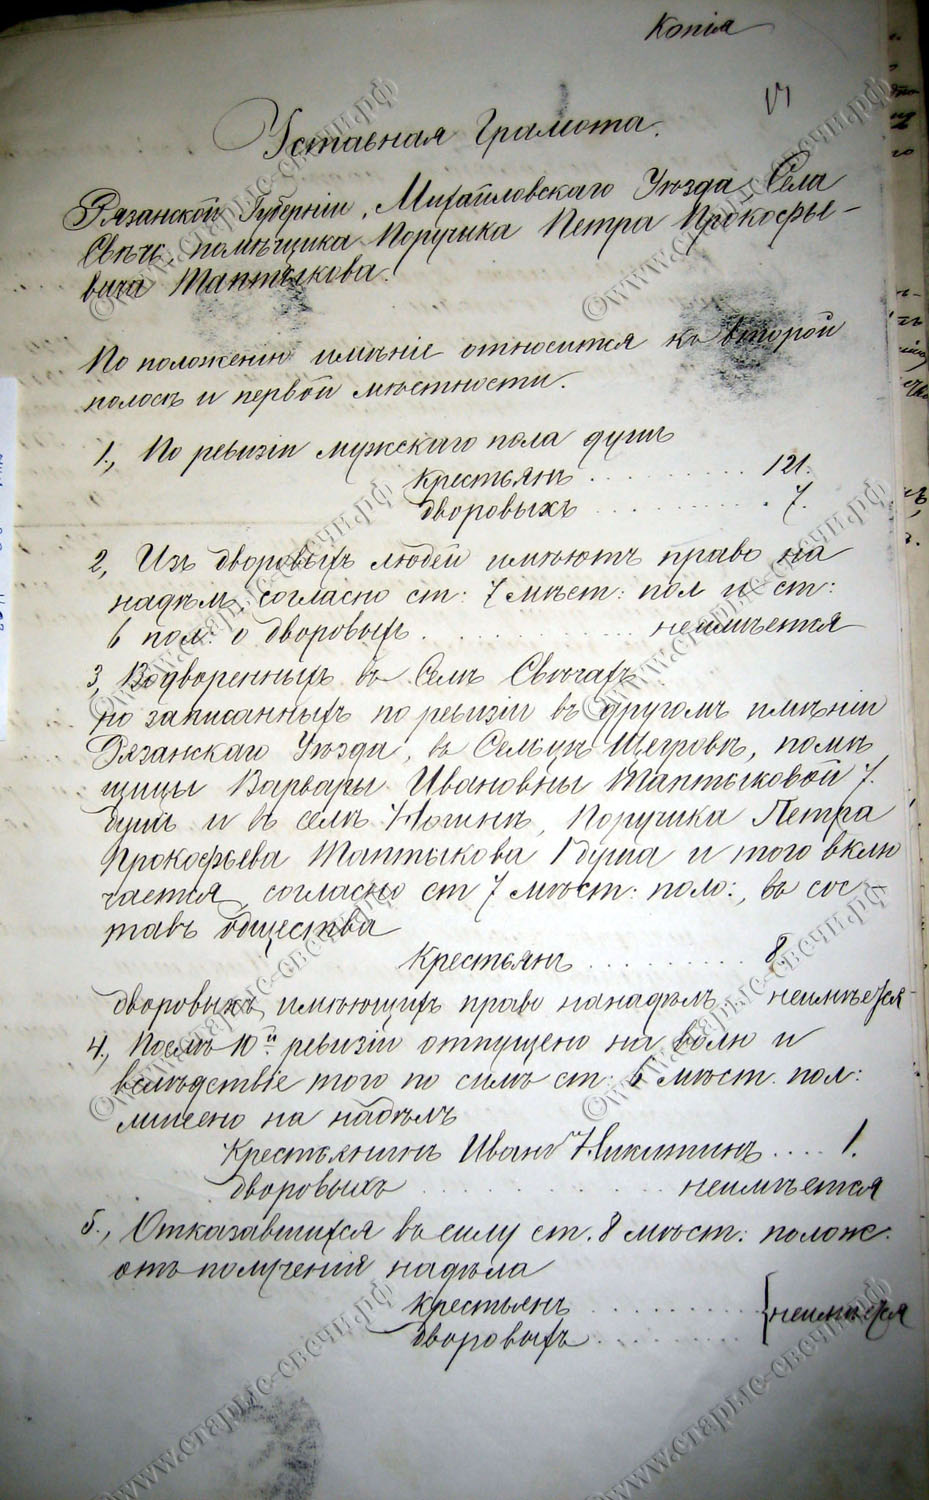 Копія
Уставная Грамота.
Рязанской Губерніи, Михайловскаго Уѣзда, Села
Свѣчь, помѣщика Поручика Петра Прокофье-
вича Таптыкова.
По положенію имѣніе относится къ второй
полосѣ и первой мѣстности.
1., По ревизіи мужскаго пола душъ
Крестьянъ . . . . . . . . . . 121.
дворовыхъ . . . . . . . . . . 7.
2, Изъ дворовыхъ людей имѣютъ право на
надѣлъ согласно ст: 7 мѣст: пол и ст:
6 пол: о дворовыхъ . . . . . . . . . . неимѣется
3, Водворенныхъ въ Селѣ Свѣчахъ
но записанныхъ по ревизіи въ другомъ имѣніи
Рязанскаго Уѣзда, въ Сельцѣ Щегровкѣ, помѣ
щицы Варвары Ивановны Таптыковой 7.
душъ и въ селѣ Ногинѣ, Поручика Петра
Прокофьева Таптыкова 1 душа и того вклю
чается, согласно ст 7 мѣст: поло:, въ сос-
тавъ общества
Крестьянъ . . . . . . . . . . 8
дворовыхъ имѣющихъ право на надѣлъ неимѣется
4., Послѣ 10й ревизіи отпущено на волю и
вслѣдствіе того по силѣ ст: 6 мѣст. пол:
лишено на надѣлъ
Крестьянинъ Иванъ Никитинъ .... 1.
дворовыхъ . . . . . . . . . . неимѣется
5., Отказавшихся въ силу ст. 8 мѣст: полож:
отъ полученія надѣла
Крестьянъ . . . . . . . . . .
дворовыхъ . . . . . . . . . . неимѣется
©www.старые-свечи.рф